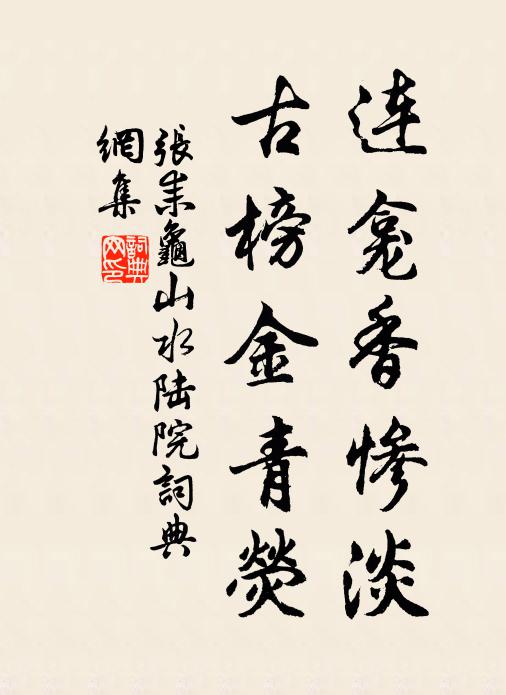 连龛香惨淡
古榜金青荧
張耒龜山水陆院詞典
網集
詞典网印